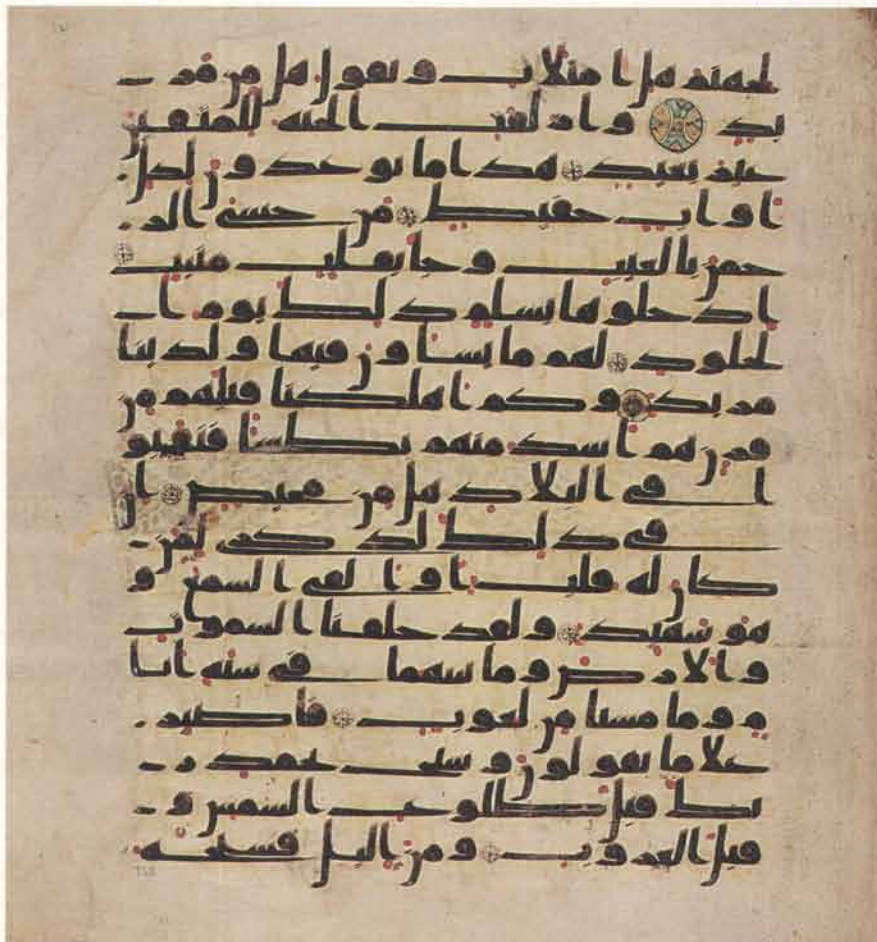 لجهنم هل امتلات وتقول هل من مز
يد وازلفت الجنة للمتقين
غير بعيد هذا ما توعدون لكل
اواب حفيظ من خشي الر
حمن بالغيب وجا بقلب منيب
ادخلوها بسلم ذلك يوم ا
لخلود لهم ما يشاون فيها ولدينا
مزيد وكم اهلكنا قبلهم من
قرن هم اشد منهم بطشا فنقبو
ا في البلاد هل من محيص ان
في ذلك لذكرى لمن
كان له قلب او القى السمع و
هو شهيد ولقد خلقنا السموت
والارض وما بينهما في ستة ايا
م وما مسنا من لغوب فاصبر
علا ما يقولون وسبح بحمد ر
بك قبل طلوع الشمس و
قبل الغروب ومن اليل فسبحه